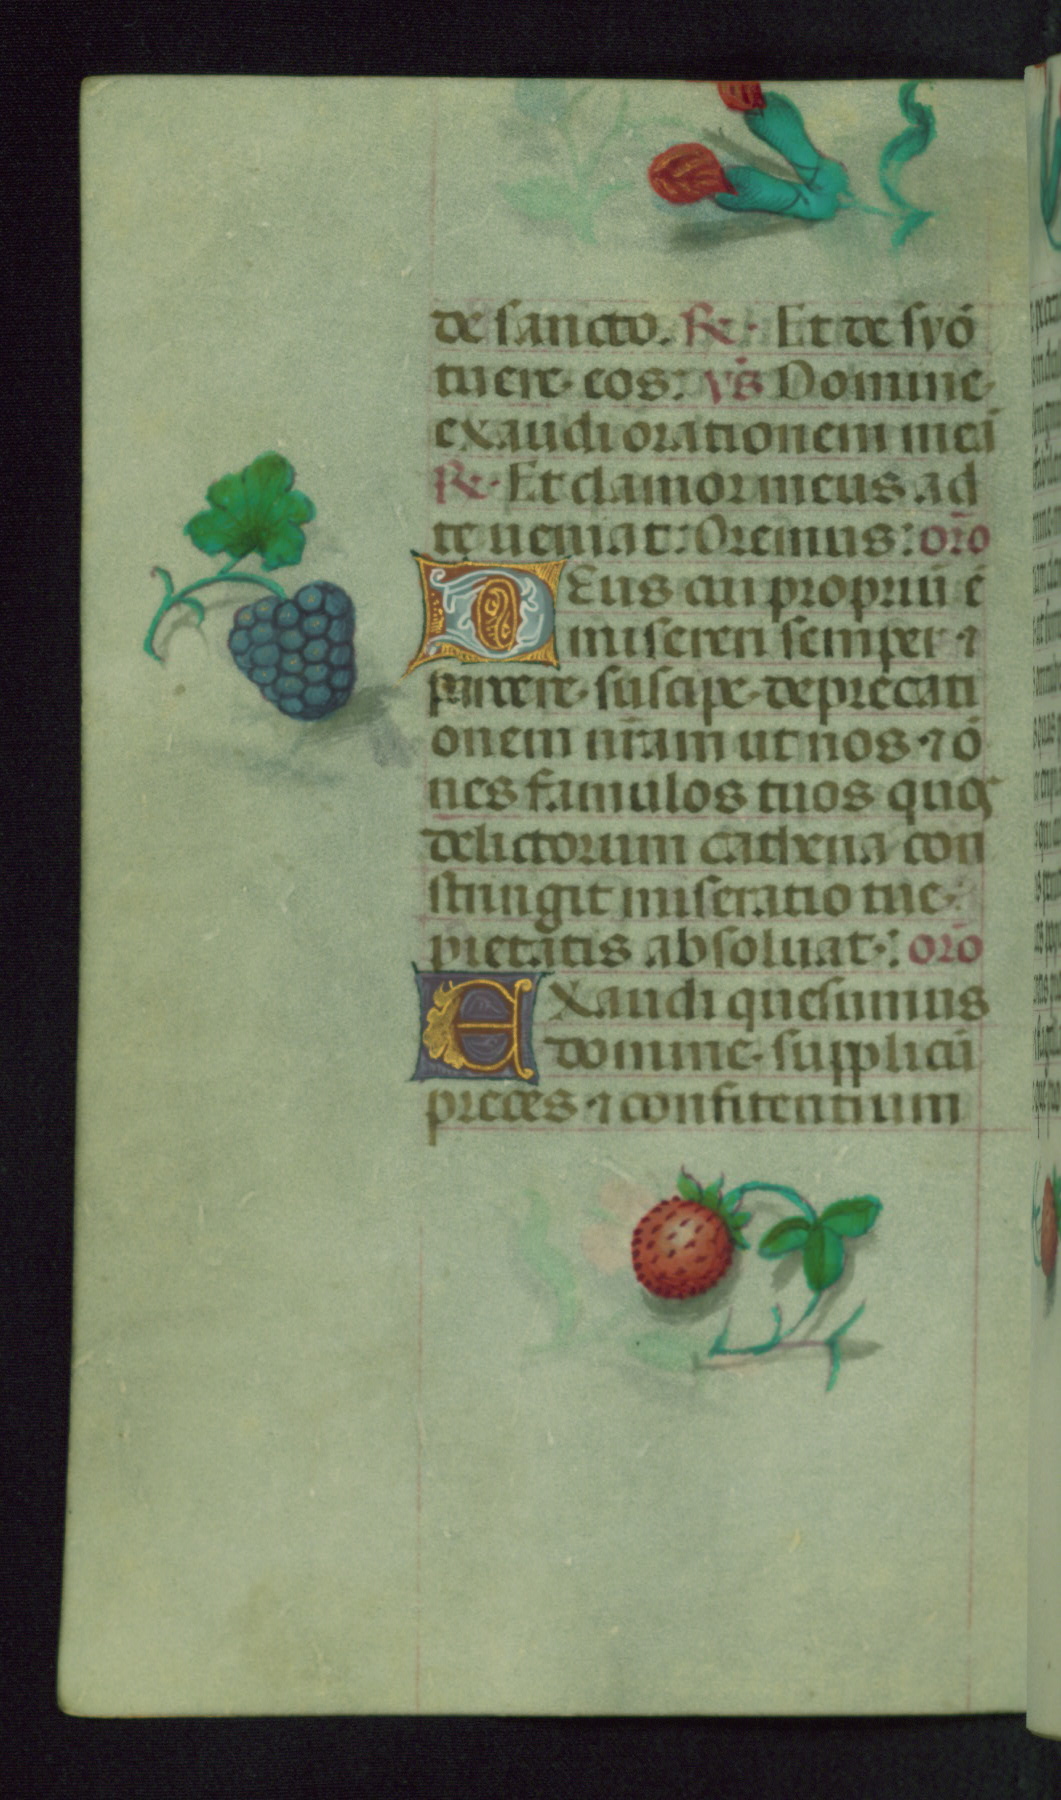 de sancto. R⁊. Et de syō
tuere eos: vs̄ Domine
exaudi orationem meā
R⁊. Et clamor meus ad
te ueniat: Oremus: orō
Deus cui propriū ē
misereri semper ⁊
parcere suscipe deprecati
onem nr̄am ut nos ⁊ ō
nes famulos tuos quos
delictorum cathena con
stringit miseratio tue
pietatis absoluat: orō
Exaudi quesumus
domine supplicū
preces ⁊ confitentium